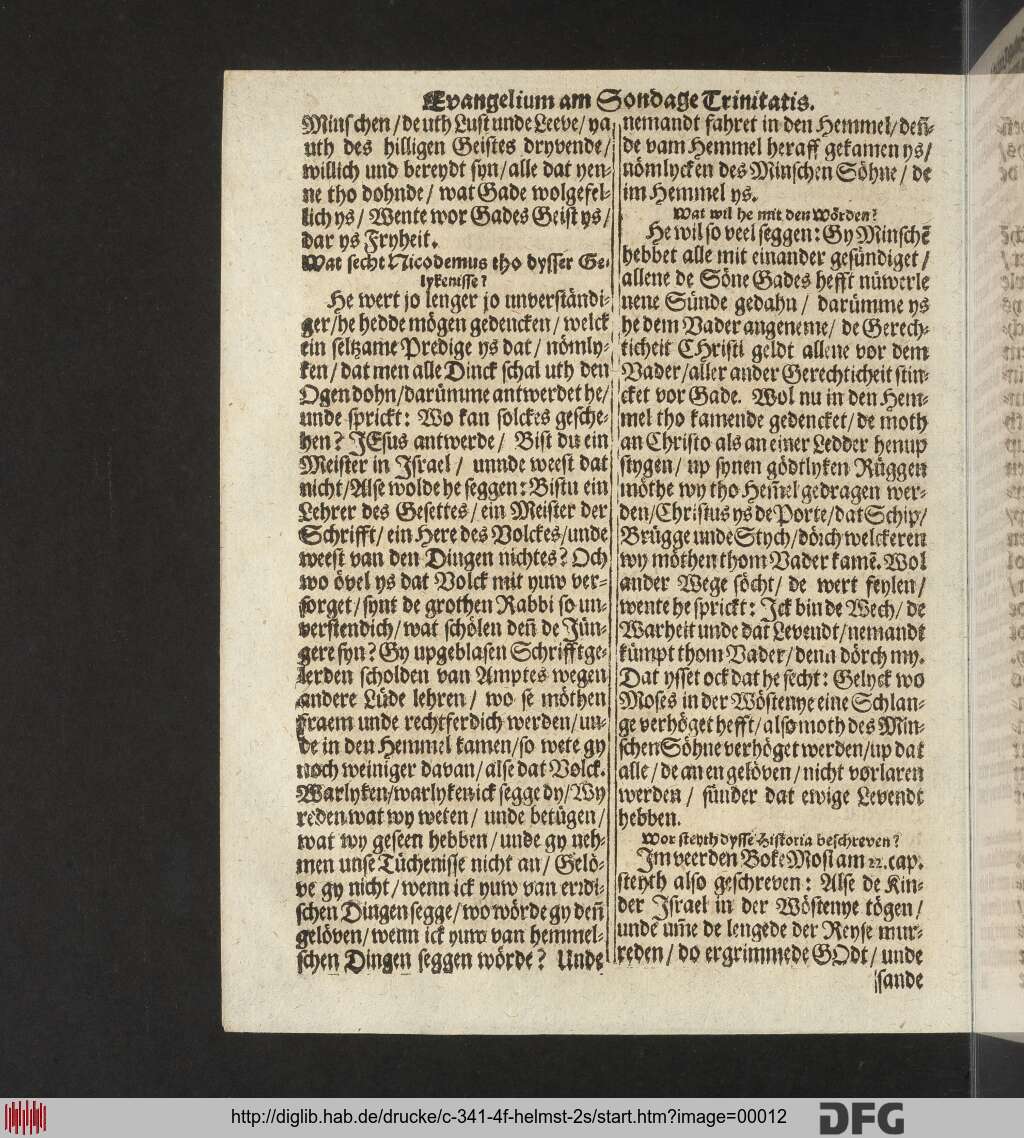 Evangelium am Sondage Trinitatis.
Minschen / de uth Lust unde Leeve / ya
uth des hilligen Geistes dryvende /
willich und bereydt syn / alle dat yen-
ne tho dohnde / wat Gade wolgefel-
lich ys / Wente wor Gades Geist ys /
dar ys Fryheit.
Wat secht Nicodemus tho dysser Ge-
lykenisse?
He wert jo lenger jo unverständi-
ger / he hedde mögen gedencken / welck
ein seltzame Predige ys dat / nömly-
ken / dat men alle Dinck schal uth den
Ogen dohn / darümme antwerdet he /
unde sprickt: Wo kan solckes gesche-
hen? JEsus antwerde / Bist du ein
Meister in Israel / unnde weest dat
nicht / Alse wolde he seggen: Bistu ein
Lehrer des Gesettes / ein Meister der
Schrifft / ein Here des Volckes / unde
weest van den Dingen nichtes? Och
wo övel ys dat Volck mit yuw ver-
sorget / synt de grothen Rabbi so un-
verstendich / wat schölen den̄ de Jün-
gere syn? Gy upgeblasen Schrifftge-
lerden scholden van Amptes wegen
andere Lüde lehren / wo se möthen
fraem unde rechtferdich werden / un-
de in den Hemmel kamen / so wete gy
noch weiniger davan / alse dat Volck.
Warlyken / warlyken ick segge dy / Wy
reden wat wy weten / unde betügen /
wat wy geseen hebben / unde gy neh-
men unse Tüchenisse nicht an / Gelö-
ve gy nicht / wenn ick yuw van erdi-
schen Dingen segge / wo wörde gy den̄
gelöven / wenn ick yuw van hemmel-
schen Dingen seggen wörde? Unde
nemandt fahret in den Hemmel / den̄-
de vam Hemmel heraff gekamen ys /
nömlycken des Minschen Söhne / de
im Hemmel ys.
Wat wil he mit den Wörden?
He wil so veel seggen: Gy Minschē
hebbet alle mit einander gesündiget /
allene de Söne Gades hefft nüwerle
nene Sünde gedahn / darümme ys
he dem Vader angeneme / de Gerech-
ticheit CHristi geldt allene vor dem
Vader / aller ander Gerechticheit stin-
cket vor Gade. Wol nu in den Hem-
mel tho kamende gedencket / de moth
an Christo als an einer Ledder henup
stygen / up synen gödtlyken Rüggen
möthe wy tho Hem̄el gedragen wer-
den / Christus ys de Porte / dat Schip /
Brügge unde Stych / dörch welckeren
wy möthen thom Vader kamē. Wol
ander Wege söcht / de wert feylen /
wente he sprickt: Ick bin de Wech / de
Warheit unde dat Levendt / nemandt
kümpt thom Vader / denn dörch my.
Dat ysset ock dat he secht: Gelyck wo
Moses in der Wöstenye eine Schlan-
ge verhöget hefft / also moth des Min-
schen Söhne verhöget werden / up dat
alle / de an en gelöven / nicht vorlaren
werden / sünder dat ewige Levendt
hebben.
Wor steyth dysse Historia beschreven?
Im veerden Boke Mosi am 22. cap.
steyth also geschreven: Alse de Kin-
der Israel in der Wöstenye tögen /
unde um̄e de lengede der Reyse mur-
reden / do ergrimmede GOdt / unde
sande
http://diglib.hab.de/drucke/c-341-4f-helmst-2s/start.htm?image=00012
DFG